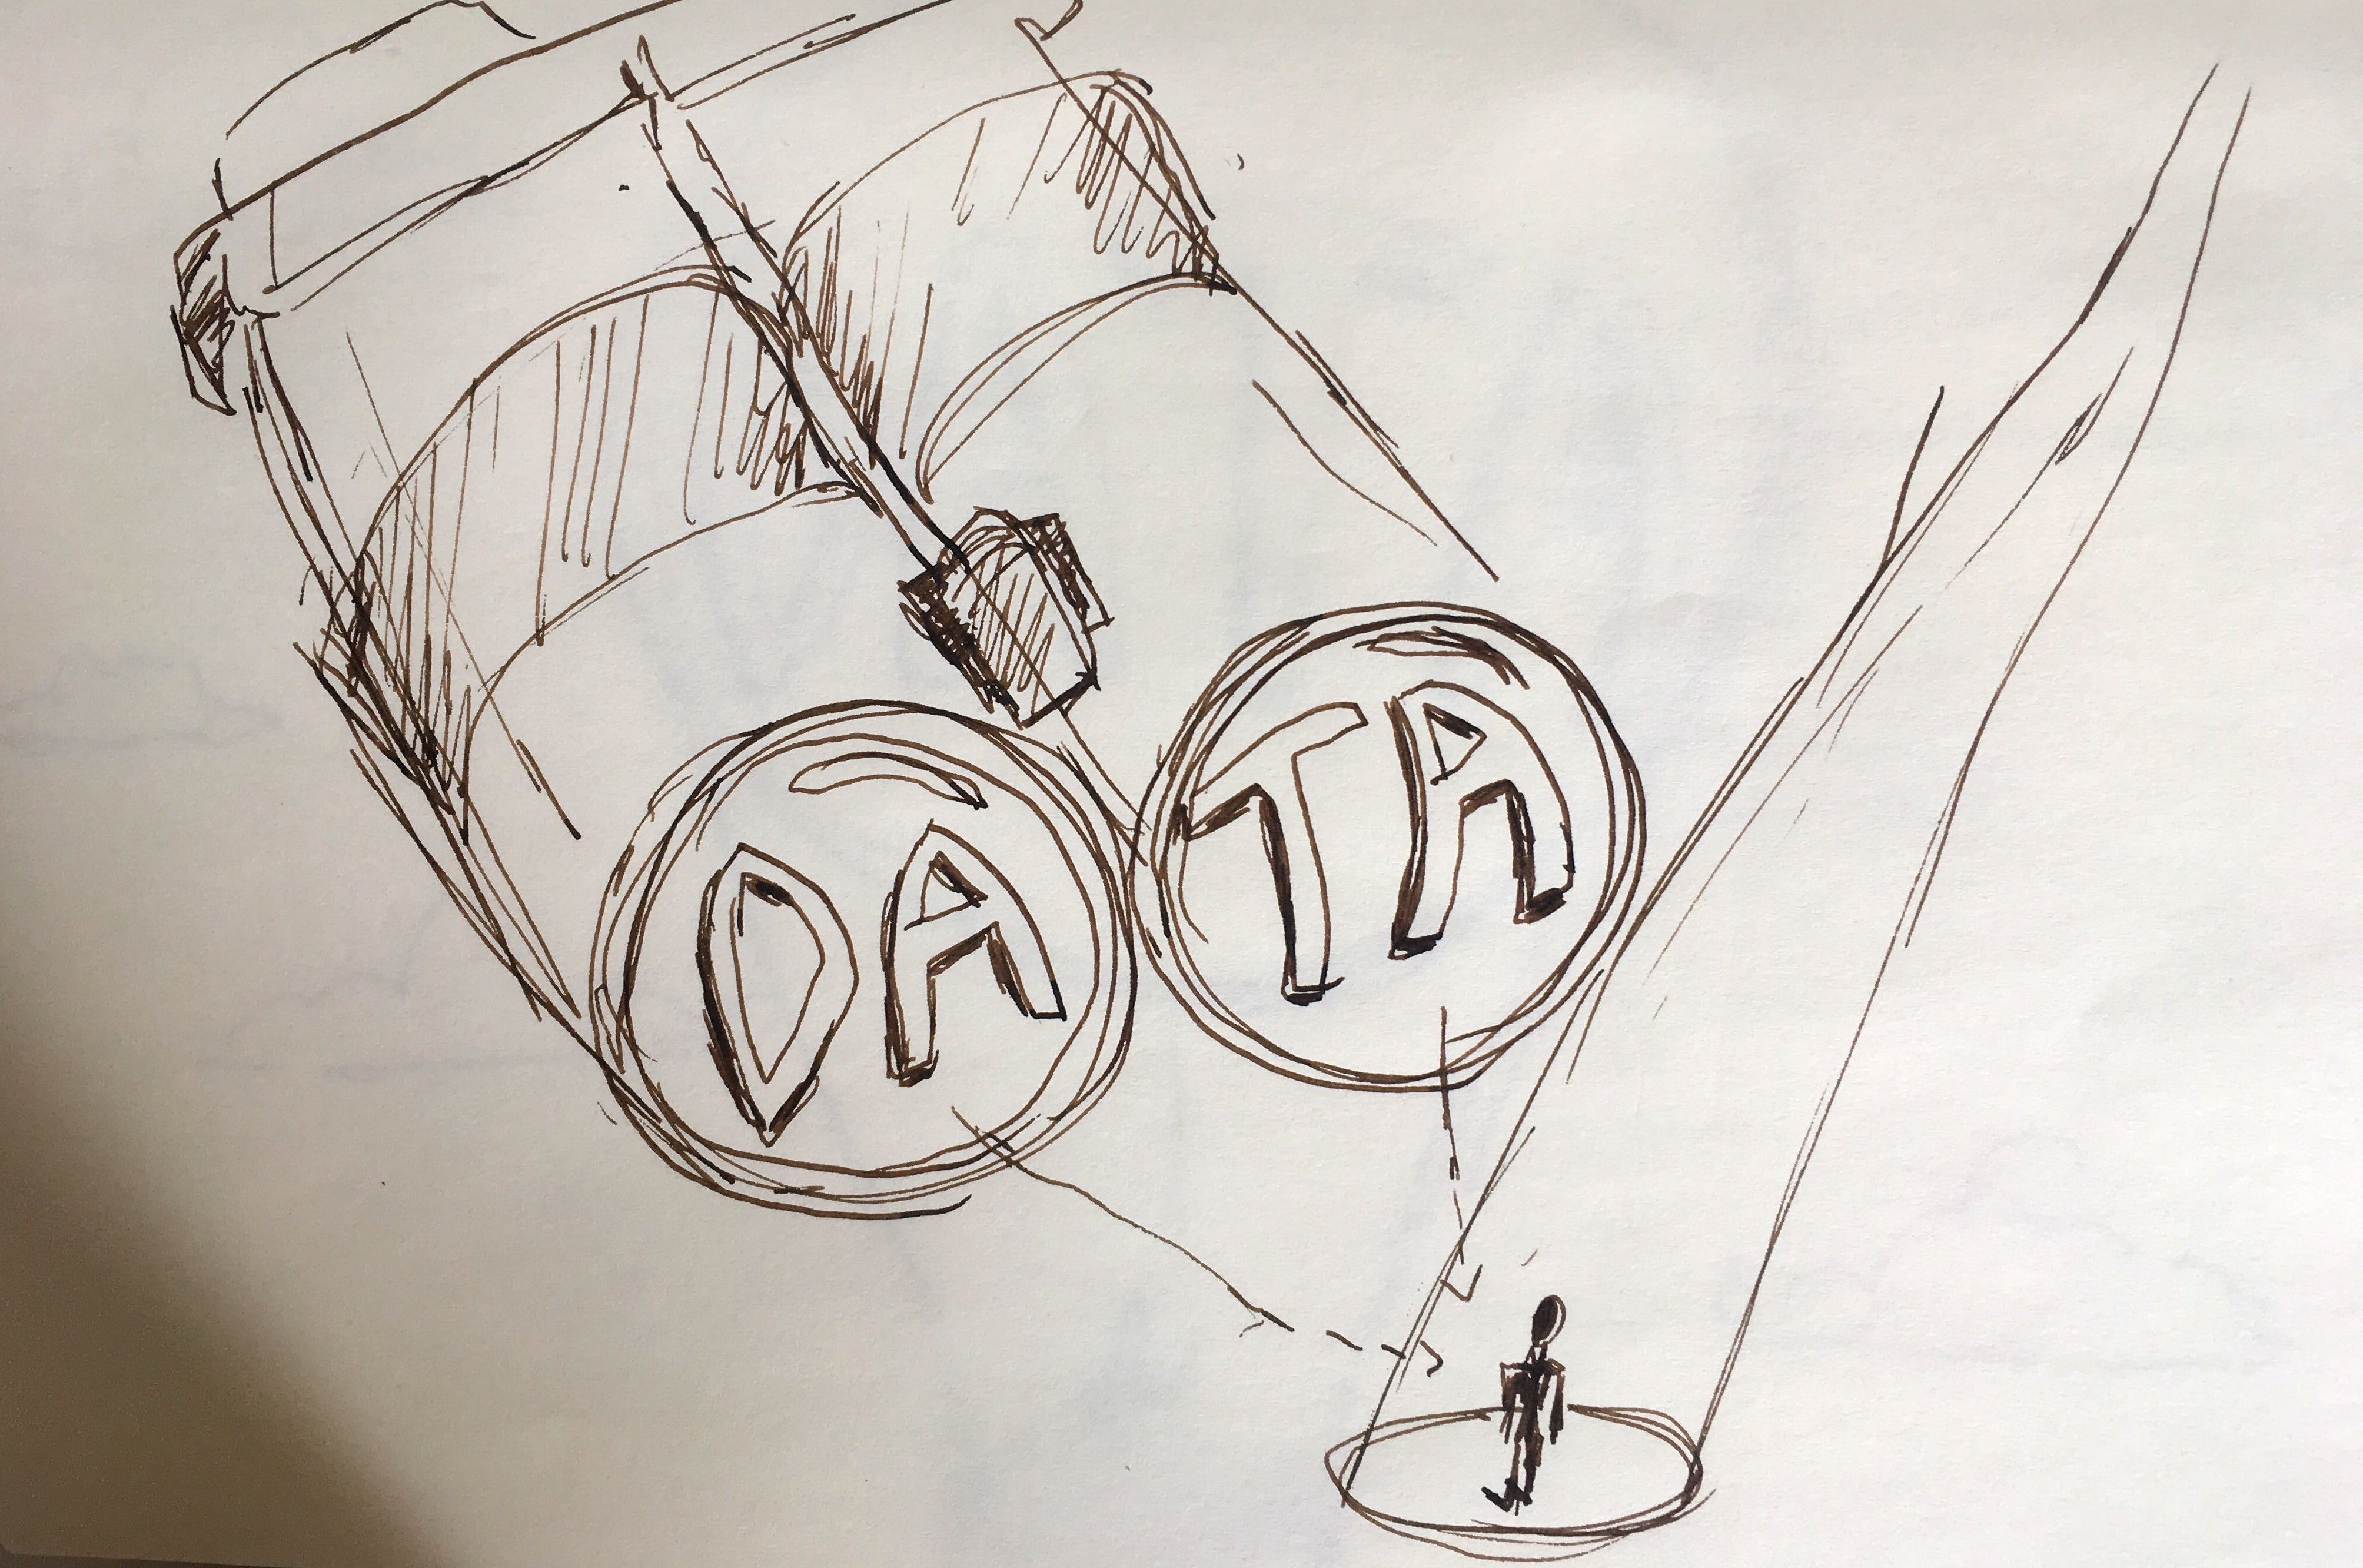 DA TA